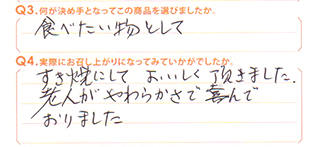 Q3.何が決め手となってこの商品を選びましたか。
食べたい物として
Q4.実際にお召し上がりになってみていかがでしたか。
すき焼にして おいしく 頂きました.
老人が やわらかさで 喜んで
おりました